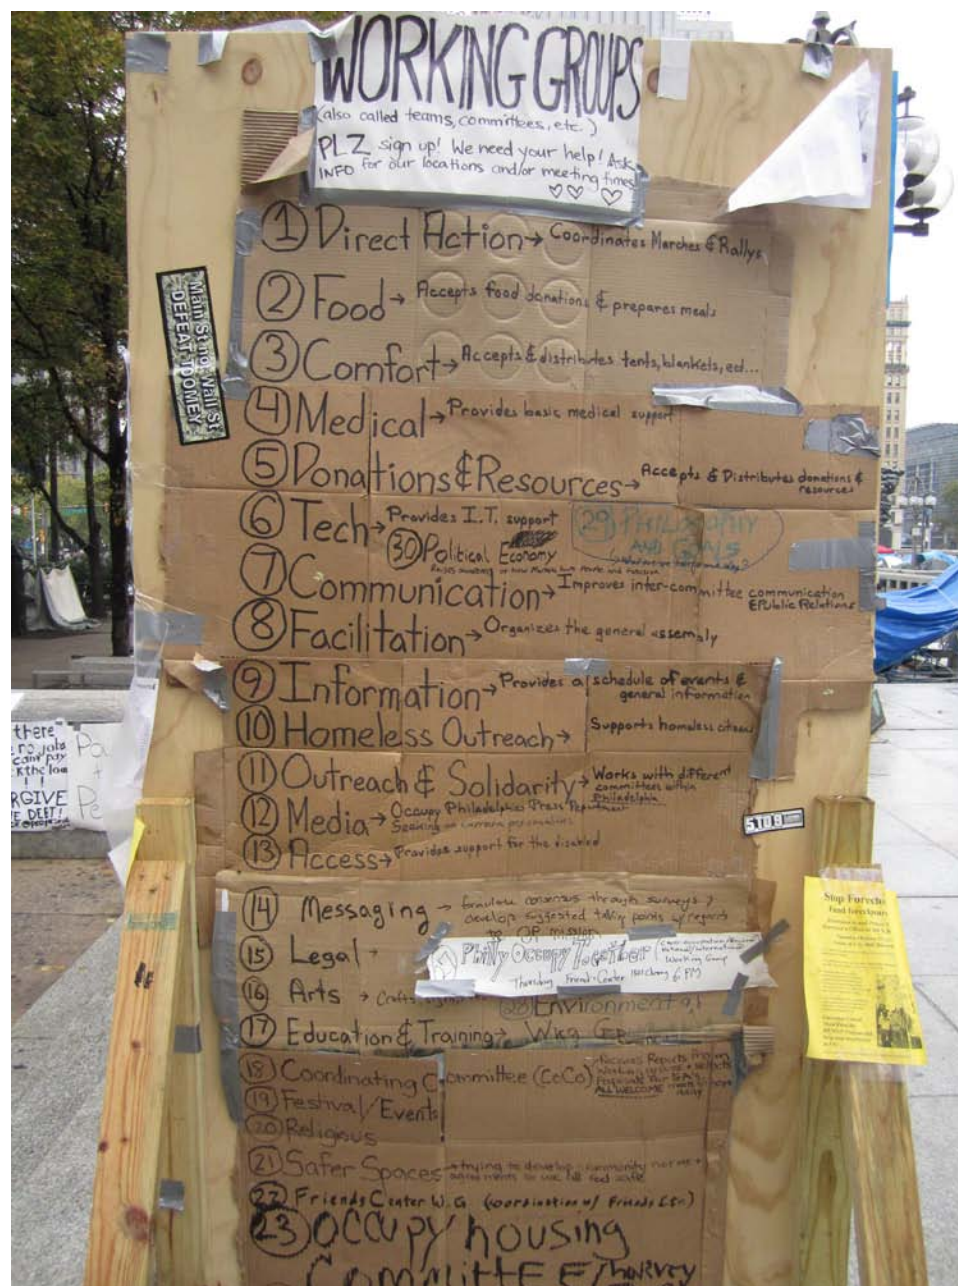 WORKING GROUPS
(also called teams, committees, etc.)
PLZ sign up! We need your help! Ask
INFO for our locations and/or meeting times
① Direct Action → Coordinates Marches & Rallys
② Food → Accepts food donations & prepares meals
③ Comfort → Accepts & distributes tents, blankets, ect...
Main St not Wall St
DEFEAT TOOMEY
④ Medical → Provides basic medical support
⑤ Donations & Resources → Accepts & Distributes donations &
resources
⑥ Tech → Provides I.T. support
㉙ PHILOSOPHY
AND GOALS
㉚ Political Economy
⑦ Communication → Improves inter-committee communication
& Public Relations
⑧ Facilitation → Organizes the general assembly
⑨ Information → Provides a schedule of events &
general information
⑩ Homeless Outreach → Supports homeless citizens
⑪ Outreach & Solidarity → Works with different
committees within
Philadelphia
⑫ Media → Occupy Philadelphia Press Department
⑬ Access → Provides support for the disabled
⑭ Messaging → formulate consensus through surveys,
develop suggested talking points w/ regards
to OP mission
⑮ Legal →
Philly Occupy Together
Working Group
Thursday Friends Center 1501 Cherry 6 PM
⑯ Arts → Crafts
㉘ Environmental
⑰ Education & Training → Wkg
⑱ Coordinating Committee (CoCo)
ALL WELCOME
⑲ Festival/Events
⑳ Religious
㉑ Safer Spaces → trying to develop community norms +
agreements so we all feel safe
㉒ Friends Center W.G (coordination w/ Friends Ctr.)
㉓ OCCUPY housing
COMMITTEE/
there
no jobs
cant pay
DEBT!
Stop Forech